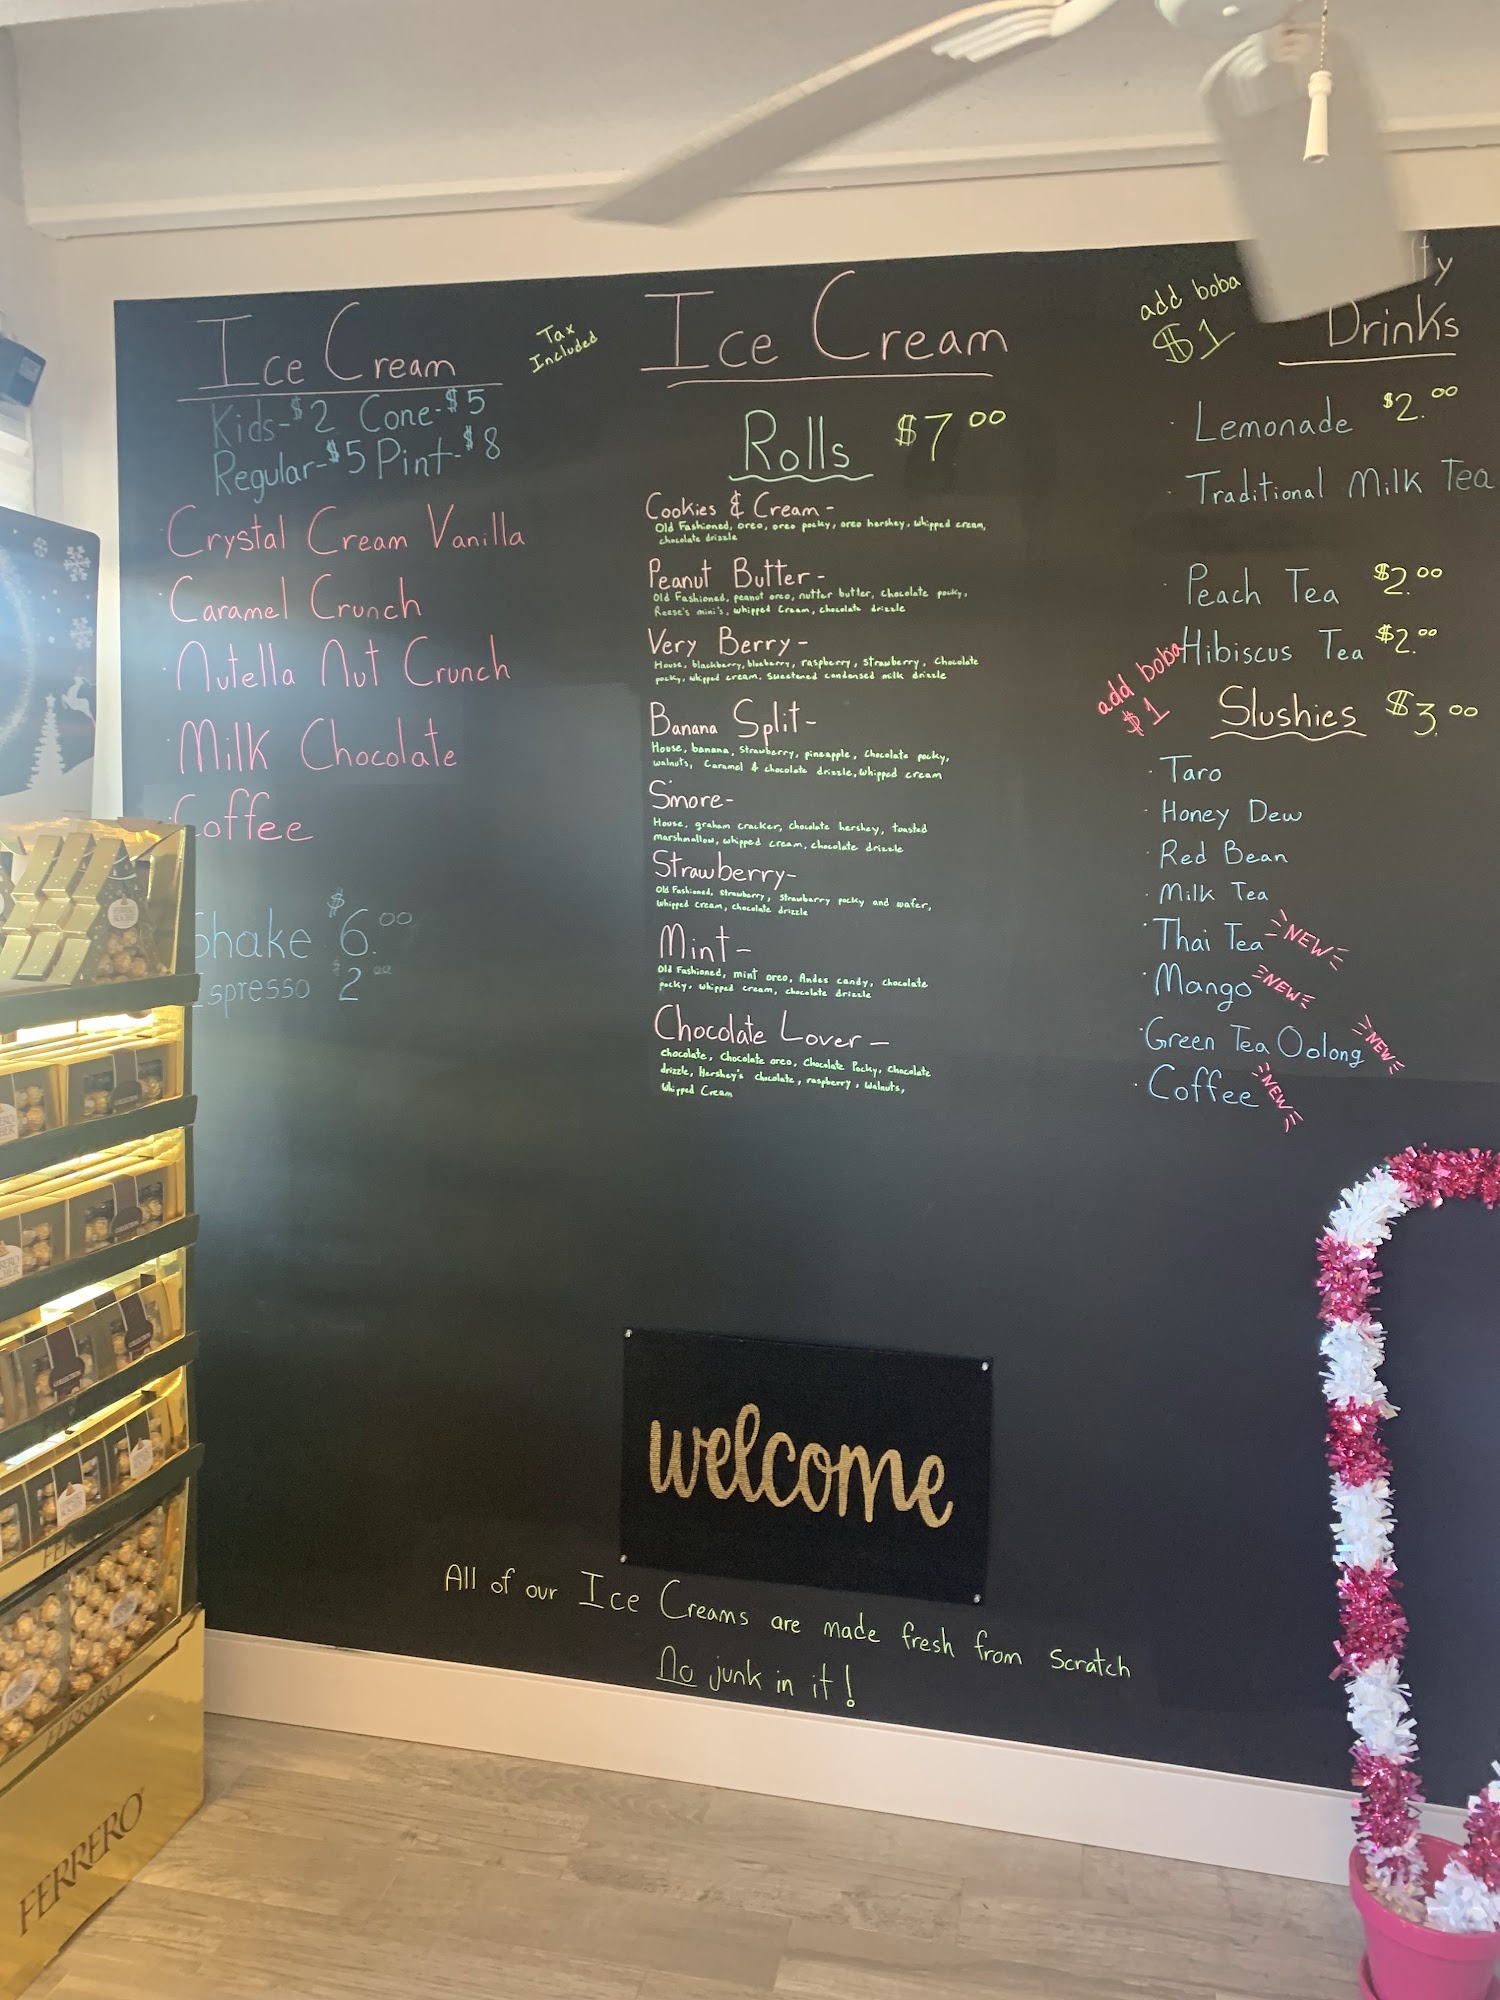 Ice Cream
Tax
Included
Kids-$2 Cone-$5
Regular-$5 Pint-$8
Crystal Cream Vanilla
Caramel Crunch
Nutella Nut Crunch
Milk Chocolate
Coffee
Shake $6.00
Espresso $2.00
Ice Cream
Rolls $7.00
Cookies & Cream-
Old Fashioned, oreo, oreo pocky, oreo hershey, whipped cream,
chocolate drizzle
Peanut Butter-
Old Fashioned, peanut oreo, nutter butter, chocolate pocky,
Reese's mini's, whipped cream, chocolate drizzle
Very Berry-
House, blackberry, blueberry, raspberry, strawberry, chocolate
pocky, whipped cream, sweetened condensed milk drizzle
Banana Split-
House, banana, strawberry, pineapple, chocolate pocky,
walnuts, caramel & chocolate drizzle, whipped cream
S'more-
House, graham cracker, chocolate hershey, toasted
marshmallow, whipped cream, chocolate drizzle
Strawberry-
Old Fashioned, strawberry, strawberry pocky and wafer,
whipped cream, chocolate drizzle
Mint-
Old Fashioned, mint oreo, Andes candy, chocolate
pocky, whipped cream, chocolate drizzle
Chocolate Lover-
chocolate, chocolate oreo, chocolate pocky, chocolate
drizzle, Hershey's chocolate, raspberry, walnuts,
whipped cream
add boba
$1
Drinks
Lemonade $2.00
Traditional Milk Tea
Peach Tea $2.00
Hibiscus Tea $2.00
add boba
$1
Slushies $3.00
Taro
Honey Dew
Red Bean
Milk Tea
Thai Tea NEW
Mango NEW
Green Tea Oolong NEW
Coffee NEW
welcome
All of our Ice Creams are made fresh from scratch
No junk in it!
FERRERO